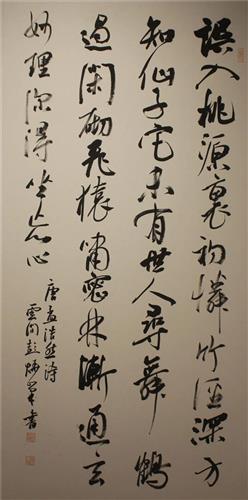 誤入桃源裏初憐竹徑深方
知仙子宅未有世人尋舞鶴
過閑砌飛猿嘯密林漸通玄
妙理深得坐忘心
唐孟浩然詩
雲間彭書